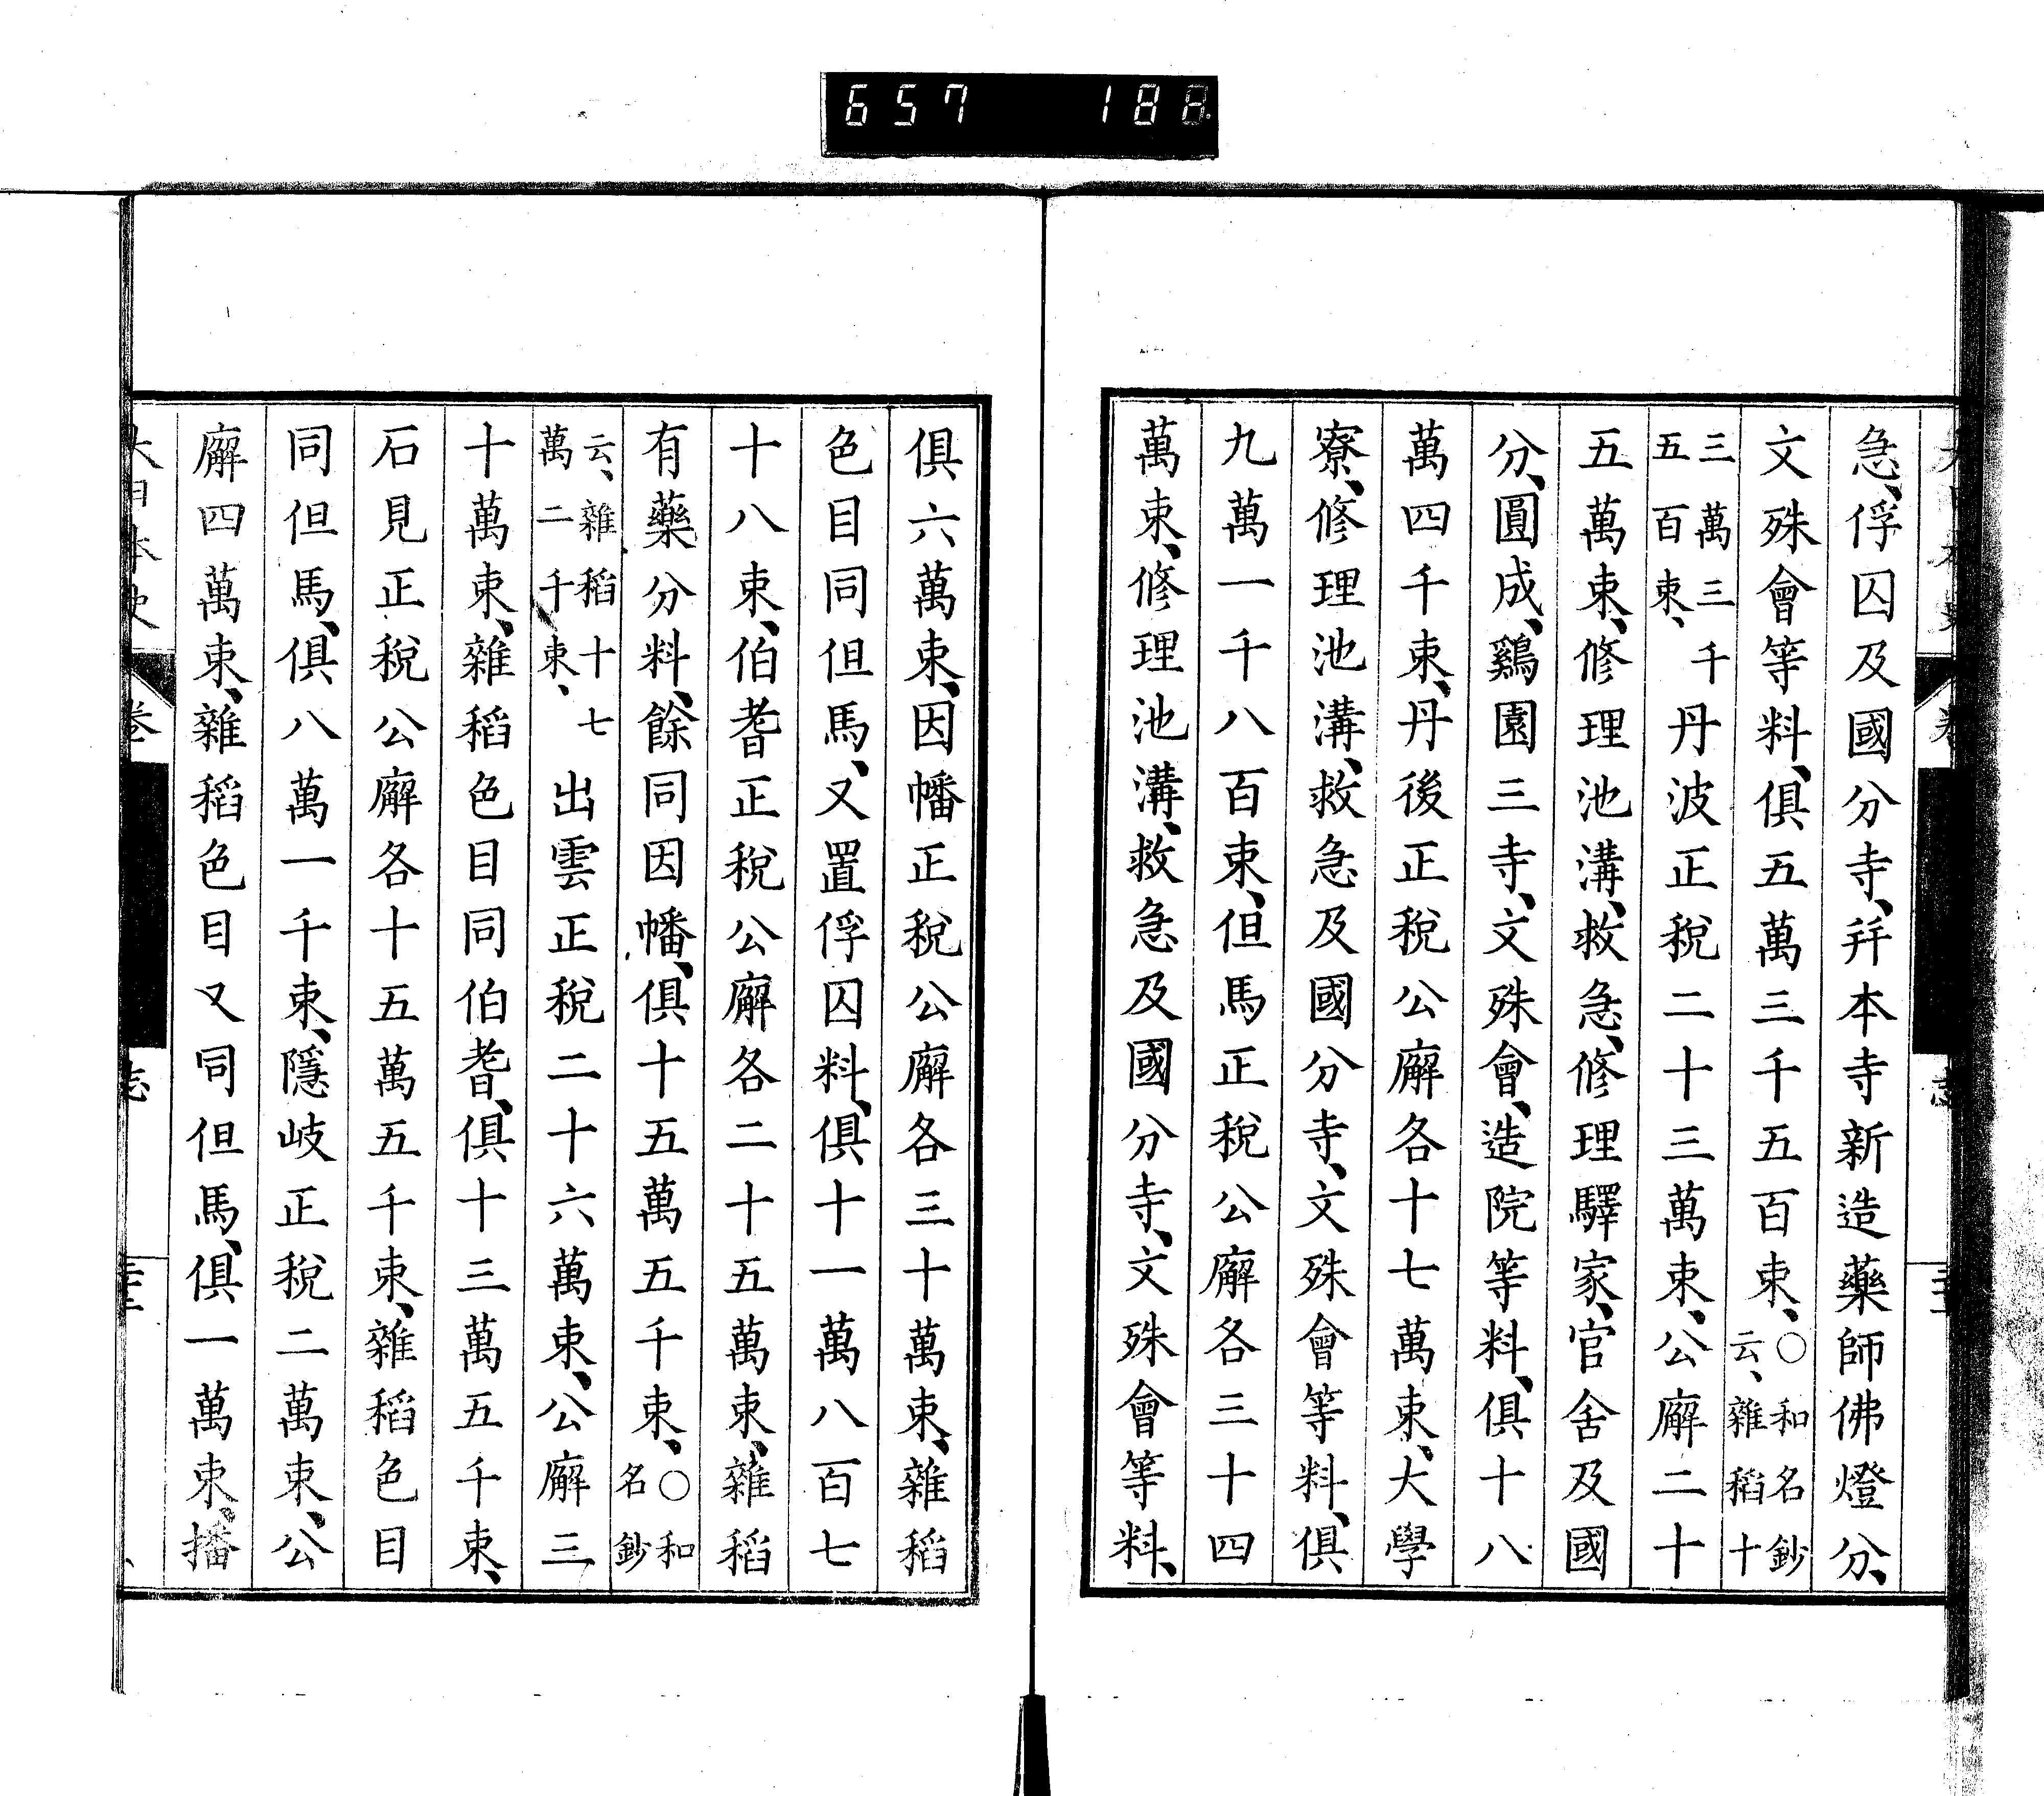 657 188
急、俘囚及國分寺、幷本寺新造藥師佛燈分、
文殊會等料、俱五萬三千五百束、○和名鈔云、雜稻十
三萬三千五百束、丹波正稅二十三萬束、公廨二十
五萬束、修理池溝、救急、修理驛家、官舍及國
分、圓成、鷄園三寺、文殊會、造院等料、俱十八
萬四千束、丹後正稅公廨各十七萬束、大學
寮、修理池溝、救急及國分寺、文殊會等料、俱
九萬一千八百束、但馬正稅公廨各三十四
萬束、修理池溝、救急及國分寺、文殊會等料、
俱六萬束、因幡正稅公廨各三十萬束、雜稻
色目同但馬、又置俘囚料、俱十一萬八百七
十八束、伯耆正稅公廨各二十五萬束、雜稻
有藥分料、餘同因幡、俱十五萬五千束、○和名鈔
云、雜稻十七萬二千束、出雲正稅二十六萬束、公廨三
十萬束、雜稻色目同伯耆、俱十三萬五千束、
石見正稅公廨各十五萬五千束、雜稻色目
同但馬、俱八萬一千束、隱岐正稅二萬束、公
廨四萬束、雜稻色目又同但馬、俱一萬束、播